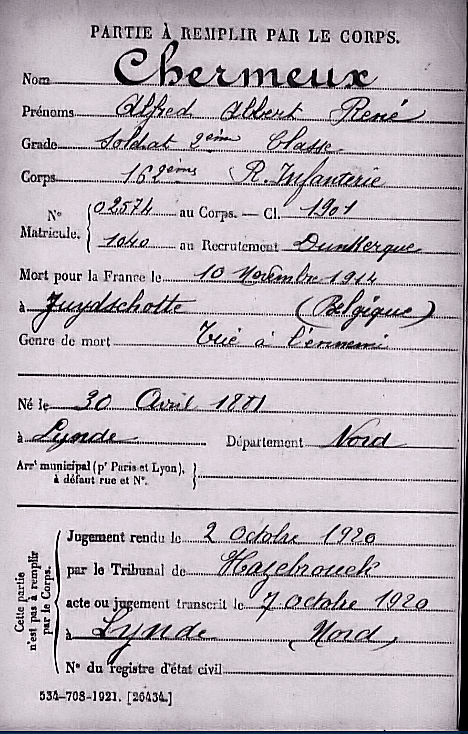 PARTIE À REMPLIR PAR LE CORPS.
Nom Chermeux
Prénoms Alfred Albert René
Grade Soldat 2ème Classe
Corps 162ème R. Infanterie
N° Matricule. 02574 au Corps. — Cl. 1901
1040 au Recrutement Dunkerque
Mort pour la France le 10 Novembre 1914
à Zuydschotte (Belgique)
Genre de mort Tué à l'ennemi
Né le 30 Avril 1881
à Lynde Département Nord
Arrt municipal (pr Paris et Lyon),
à défaut rue et N°.
Cette partie n'est pas à remplir par le Corps.
Jugement rendu le 2 Octobre 1920
par le Tribunal de Hazebrouck
acte ou jugement transcrit le 7 Octobre 1920
à Lynde (Nord)
N° du registre d'état civil
534-708-1921. [26434.]